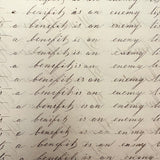 a benefit, is an enemy
a benefit, is an enemy
a benefit, is an enemy
a benefit, is an enemy
a benefit, is an enemy
a benefit, is an enemy
a benefit, is an enemy
a benefit, is an enemy
a benefit, is an enemy
a benefit, is an enemy
a benefit, is an enemy
a benefit, is an enemy